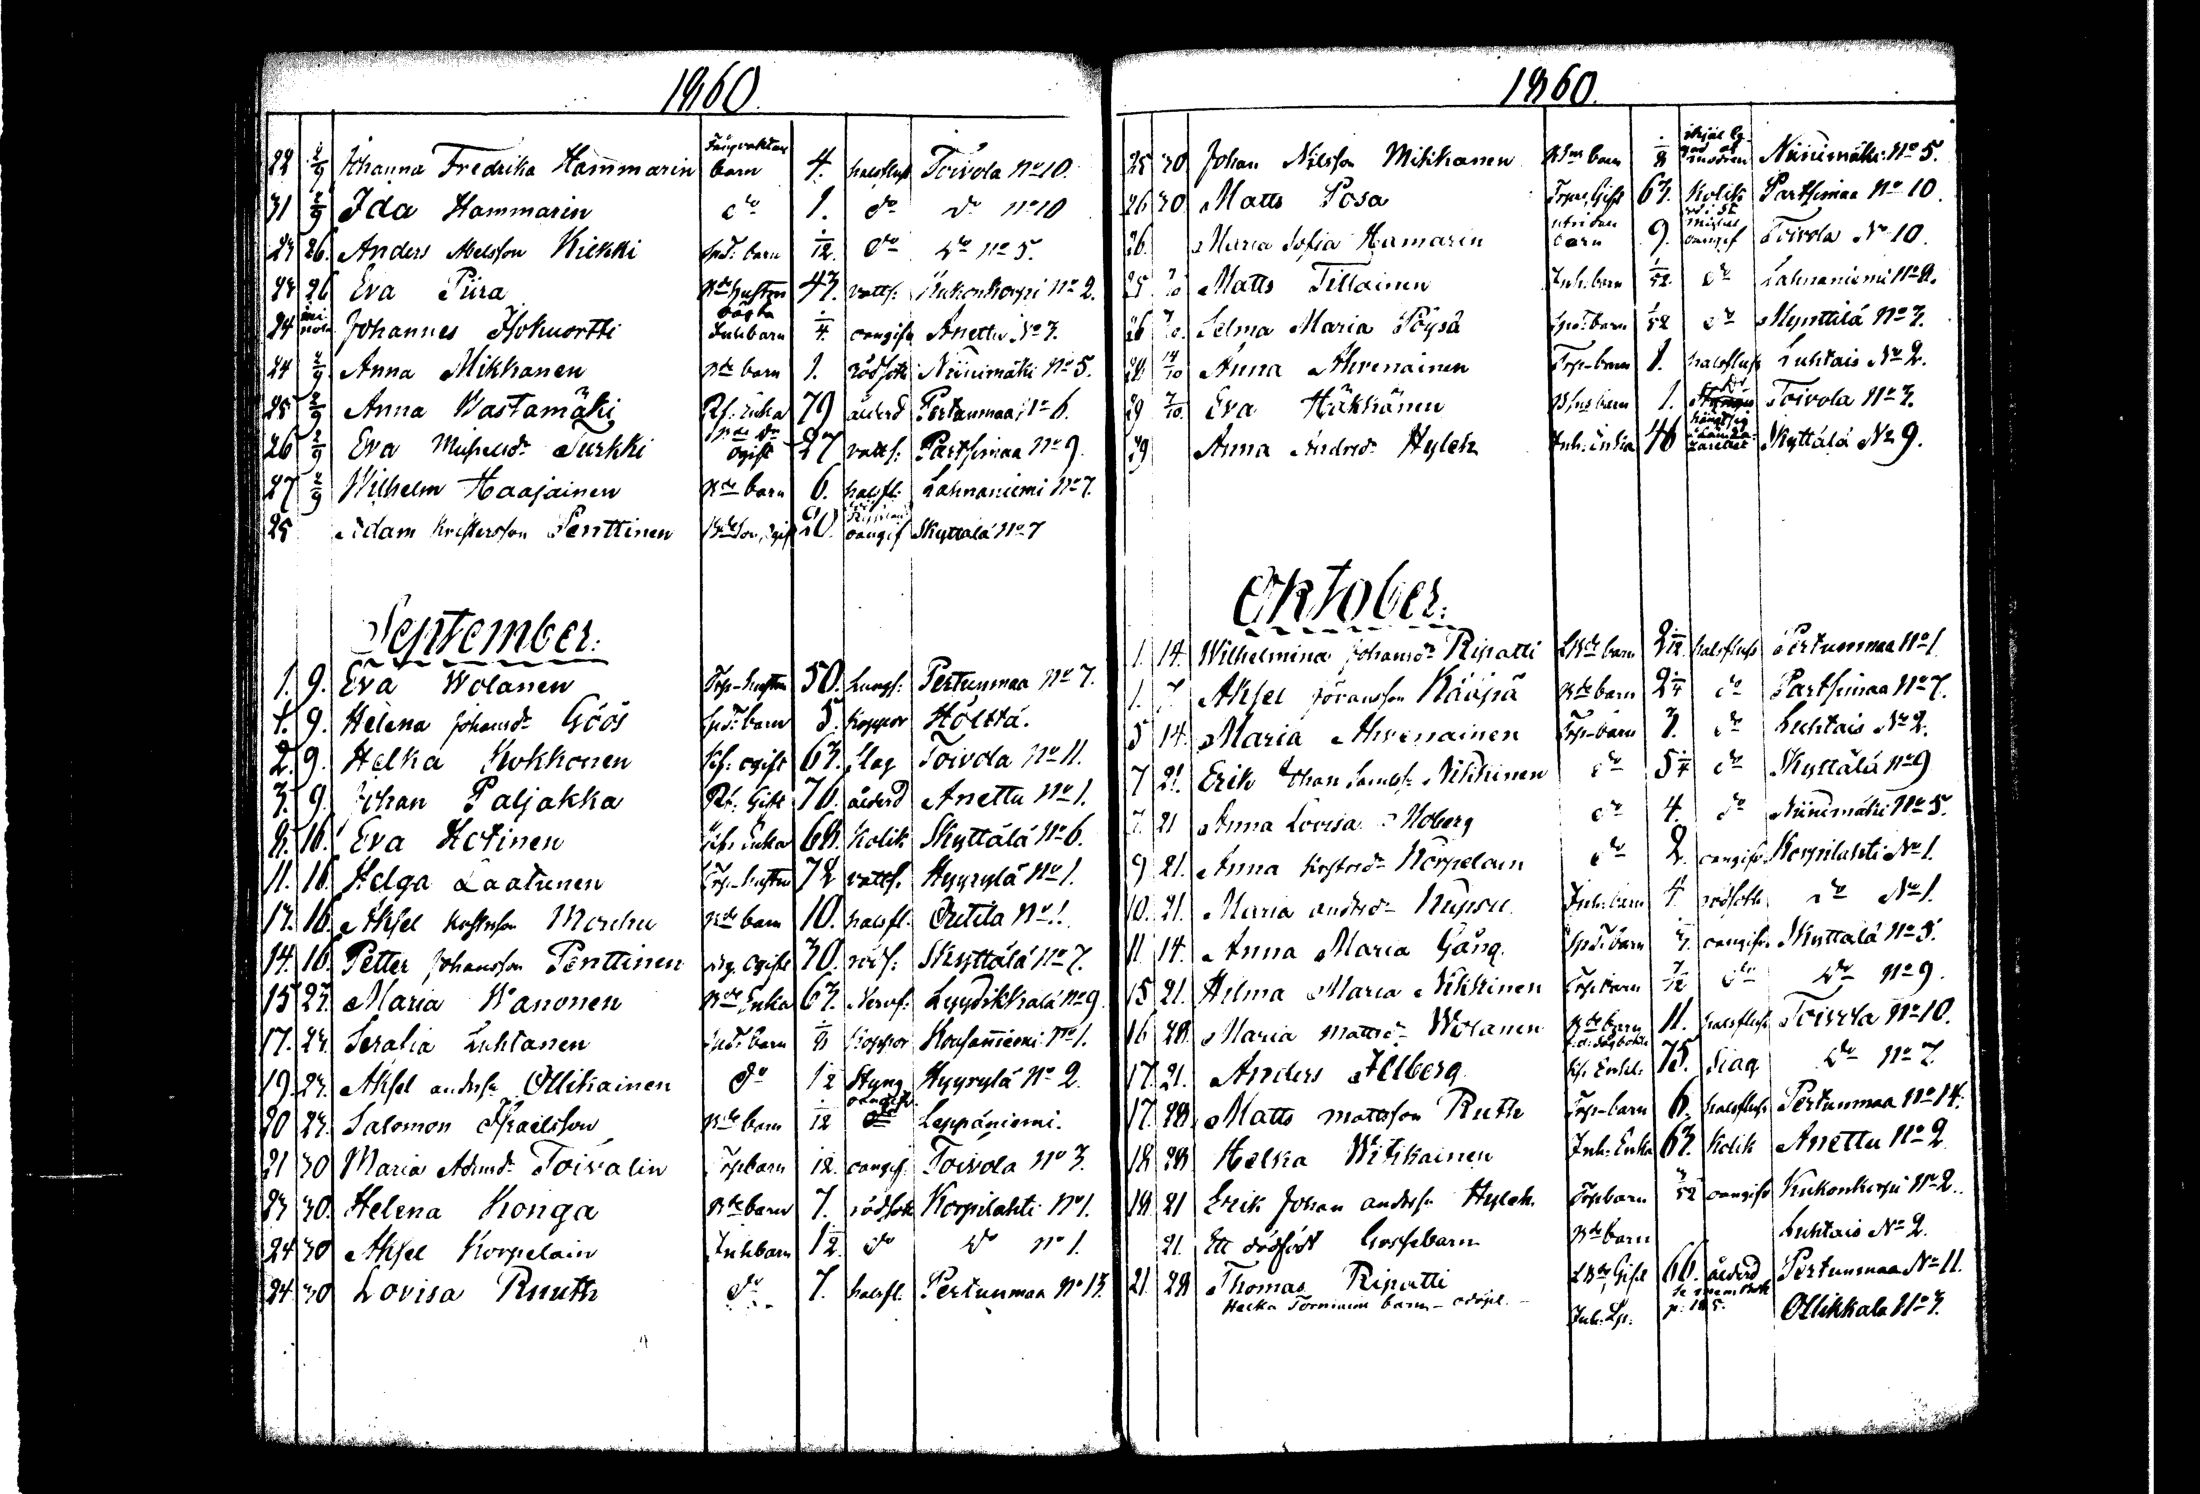 1860.
22 2/9 Johanna Fredrika Hammarin barn 4. halsfluss Toivola No 10.
31 2/9 Ida Hammarin do 1. do do No 10
23 26. Anders Abelsson Kiekki Spst. barn 1/12. do do No 5.
23 26 Eva Piira Bde hustru 43. vatts: Kukonkorpi No 2.
24 Johannes Hokuortti Inh barn 1/4. oangifn Anettu No 3.
24 2/9 Anna Mikkanen Bde barn 1. rödsot Niinimäki No 5.
25 2/9 Anna Wastamäki Rf. Enka 79 ålderd Pertunmaa No 6.
26 2/9 Eva Turkki ogift 27 vatts: Partsimaa No 9.
27 2/9 Wilhelm Haajainen Bde barn 6. halsfl: Lahnaniemi No 7.
25 Adam Kristersson Penttinen Bde Son, Ogift 20. oangif Skyttälä No 7
September.
1. 9. Eva Wolanen Torp-hustru 50. Lungs: Pertunmaa No 7.
1. 9. Helena Johansdr Göös Spst: barn 5. koppor Hölttä.
2. 9. Helka Kokkonen ogift 63. slag Toivola No 11.
3. 9. Johan Paljakka Rf. Gift 76. ålderd Anettu No 1.
8. 16. Eva Hotinen Enka 68. Kolik Skyttälä No 6.
11. 16. Helga Laatunen Torp-hustru 72 vatts. Hyyrylä No 1.
13. 16. Aksel Morehu Bde barn 10. halsfl. Outila No 1.
14. 16. Petter Johansson Penttinen Ogift 30. röds: Skyttälä No 7.
15 23. Maria Wanonen Bde Enka 63. Nervf: Lyydikkälä No 9
17. 23. Seralia Luhtanen Inh. barn 1/8 Koppor Kousaniemi No 1.
19. 23. Aksel Anderss. Ollikainen do 1/2 Styng Hyyrylä No 2.
20 23. Salomon Israelsson Bde barn 1/12 Leppäniemi.
21 30 Maria Adamsdr Toivalin Torpbarn 12. oangif. Toivola No 3.
23 30. Helena Konga Bde barn 7. rödsot Korpilahti No 1.
24 30 Aksel Korpelain Inhbarn 1/2. do do No 1.
24 30 Lovisa Ruuth do 7. halsfl. Pertunmaa No 13.
1860.
25 30 Johan Nilsson Mikkanen barn 1/8 modren Niinimäki No 5.
26 30 Matts Posa Gift 63. Kolik Partsimaa No 10.
26. Maria Sofia Hamarin barn 9. oangif Toivola No 10.
25 7/10 Matts Tillainen Inh. barn 1/52 do Lahnaniemi No 2.
26 7/10. Selma Maria Pöysä Spst: barn 1/52 do Mynttilä No 3.
28 14/10 Anna Ahvenainen Torp-barn 1. halsfluss Luhtais No 2.
29 7/10. Eva Häkkänen barn 1. do Toivola No 3.
29 Anna Andersdr Hyleh Inh. Enka 46 Skyttälä No 9.
Oktober.
1. 14. Wilhelmina Johansdr Ripatti LBde barn 2 1/12. halsfluss Pertunmaa No 1
1. 7. Aksel Göransson Kääpä Bde barn 2 1/4 do Partsimaa No 7.
5 14. Maria Ahvenainen Torp-barn 7. do Luhtais No 2.
7 21. Erik Johan Nikkinen do 5 1/4 do Skyttälä No 9
7. 21 Anna Lovisa Moberg do 4. do Niinimäki No 5.
9 21. Anna Korpelain do 2. oangifv Korpilahti No 1.
10. 21. Maria Andersdr Inh: barn 4. rödsoth do No 1.
11. 14. Anna Maria Gång. Spst barn oangifv. Skyttälä No 5.
15 21. Hilma Maria Nikkinen Torpbarn 7/12 do do No 9.
16 28. Maria Mattsdr Wolanen Bde barn 11. halsfluss Toivola No 10.
17. 21. Anders Hellberg 75. Slag do No 7.
17. 28. Matts Mattsson Ruth Torp-barn 6. halsfluss Pertunmaa No 14.
18 28 Helka Witikainen Inh: Enka 63. Kolik Anettu No 2
18. 21 Erik Johan Anderss. Hyleh. Torpbarn 3/52 oangifv Kukonkorpi No 2.
21. Ett dödfödt Gossebarn Bde barn Luhtais No 2.
21 28 Thomas Ripatti LBde Gift 66. ålderd Pertunmaa No 11.
Helka Torniainen barn - odöpt. Inh: Lp: Ollikkala No 3.